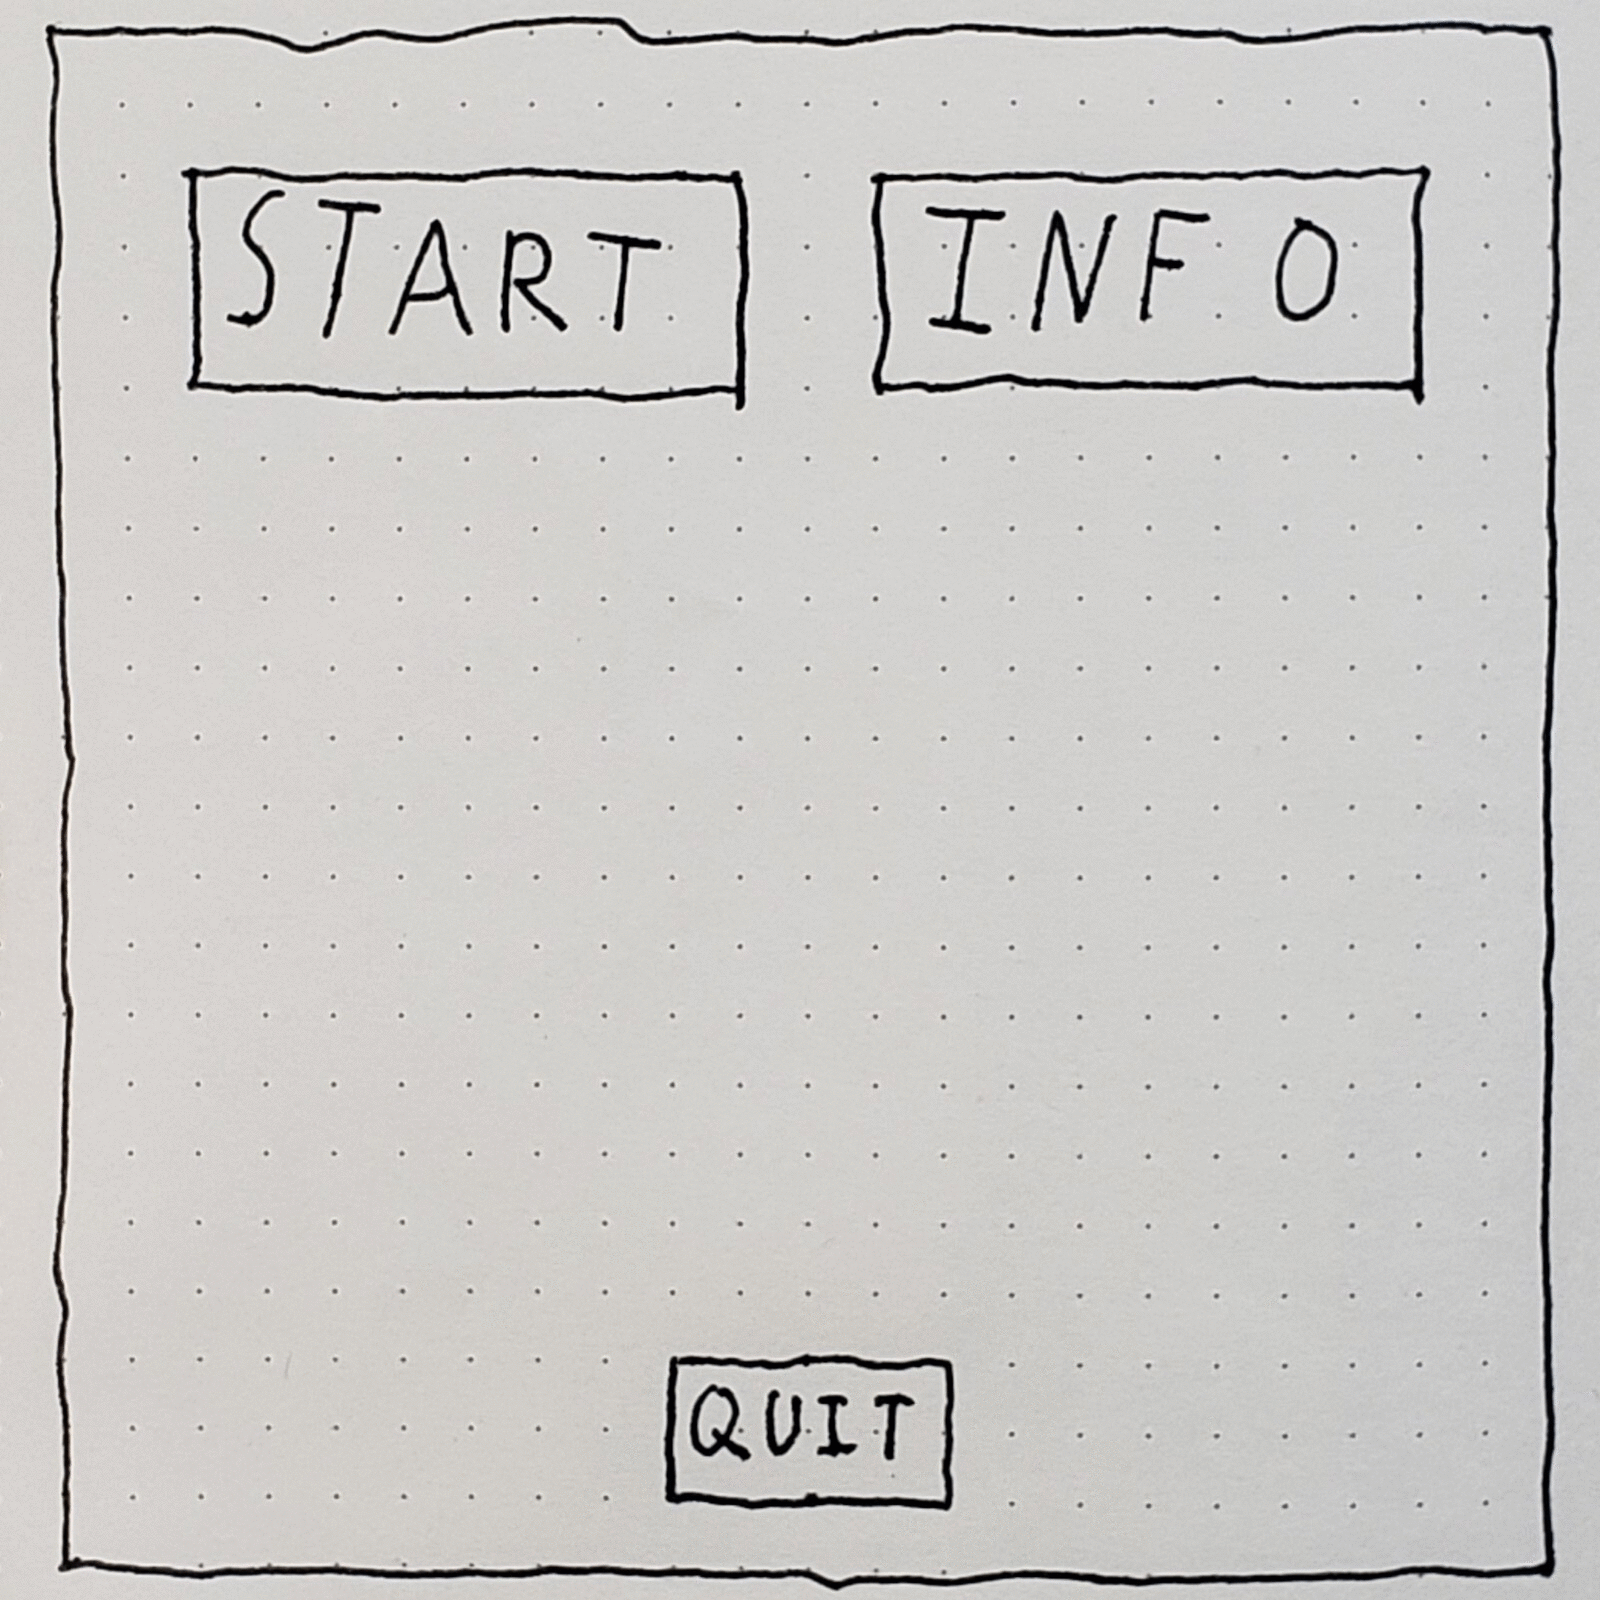 START
INFO
QUIT